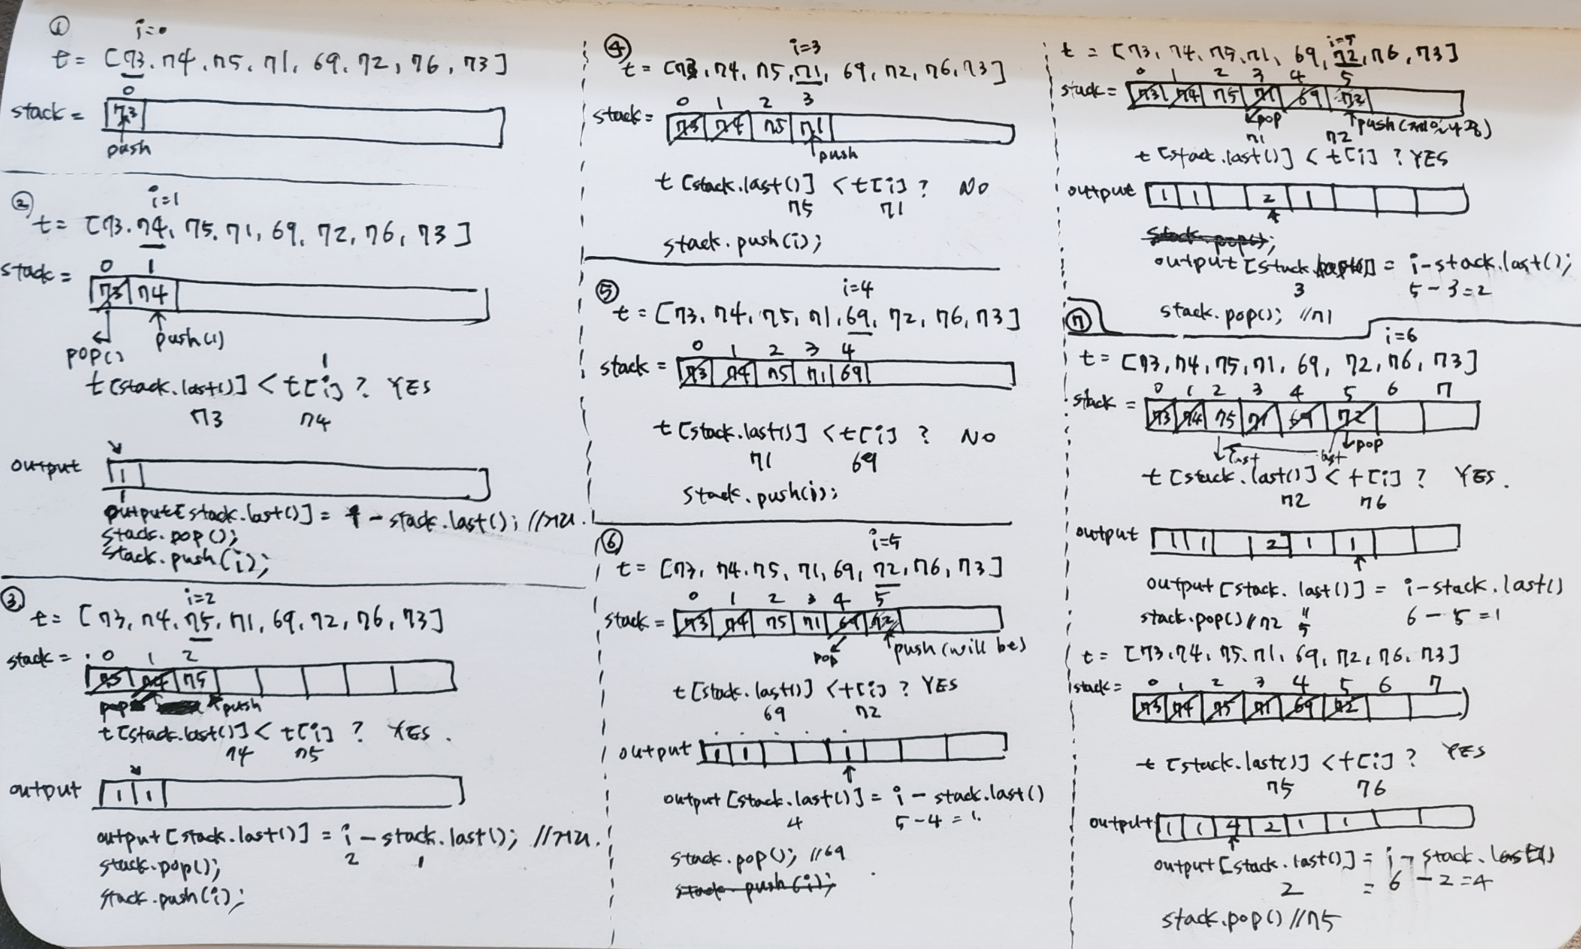 ①
i=0
t = [73, 74, 75, 71, 69, 72, 76, 73]
0
stack = 73
push
②
i=1
t = [73, 74, 75, 71, 69, 72, 76, 73]
0 1
stack = 73 74
pop() push(1)
1
t[stack.last()] < t[i] ? YES
73 74
output 1
output[stack.last()] = - stack.last(); //
stack.pop();
stack.push(i);
③
i=2
t = [73, 74, 75, 71, 69, 72, 76, 73]
0 1 2
stack = 74 75
pop push
t[stack.last()] < t[i] ? YES.
74 75
output 1 1
output[stack.last()] = i - stack.last(); //
2 1
stack.pop();
stack.push(i);
④
i=3
t = [73, 74, 75, 71, 69, 72, 76, 73]
0 1 2 3
stack = 73 74 75 71
push
t[stack.last()] < t[i] ? No
75 71
stack.push(i);
⑤
i=4
t = [73, 74, 75, 71, 69, 72, 76, 73]
0 1 2 3 4
stack = 73 74 75 71 69
t[stack.last()] < t[i] ? No
71 69
stack.push(i);
⑥
i=5
t = [73, 74, 75, 71, 69, 72, 76, 73]
0 1 2 3 4 5
stack = 73 74 75 71 69 72
pop push(will be)
t[stack.last()] < t[i] ? YES
69 72
output 1 1 1
output[stack.last()] = i - stack.last()
4 5-4=1
stack.pop(); //69
stack.push(i);
i=5
t = [73, 74, 75, 71, 69, 72, 76, 73]
0 1 2 3 4 5
stack = 73 74 75 71 69 72
pop push(
71 72
t[stack.last()] < t[i] ? YES
output 1 1 2 1
stack.pop();
output[stack = i-stack.last();
3 5-3=2
stack.pop(); //71
⑦
i=6
t = [73, 74, 75, 71, 69, 72, 76, 73]
0 1 2 3 4 5 6 7
stack = 73 74 75 71 69 72
last last pop
t[stack.last()] < t[i] ? YES.
72 76
output 1 1 2 1 1
output[stack.last()] = i-stack.last()
stack.pop() //72 5 6-5=1
t = [73, 74, 75, 71, 69, 72, 76, 73]
0 1 2 3 4 5 6 7
stack= 73 74 75 71 69 72
t[stack.last()] < t[i] ? YES
75 76
output 1 1 4 2 1 1
output[stack.last()] = i - stack.last()
2 = 6 - 2 = 4
stack.pop() //75